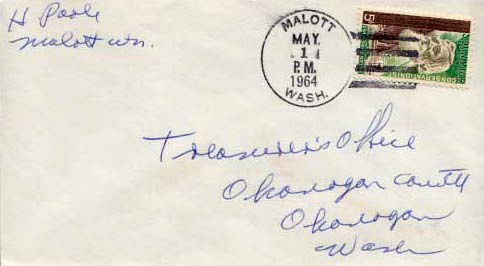 H Poole
Malott Wn.
MALOTT
MAY
1
P.M.
1964
WASH.
5¢
CONSERVATIONIST
Treasurer's Office
Okanogan County
Okanogan
Wash